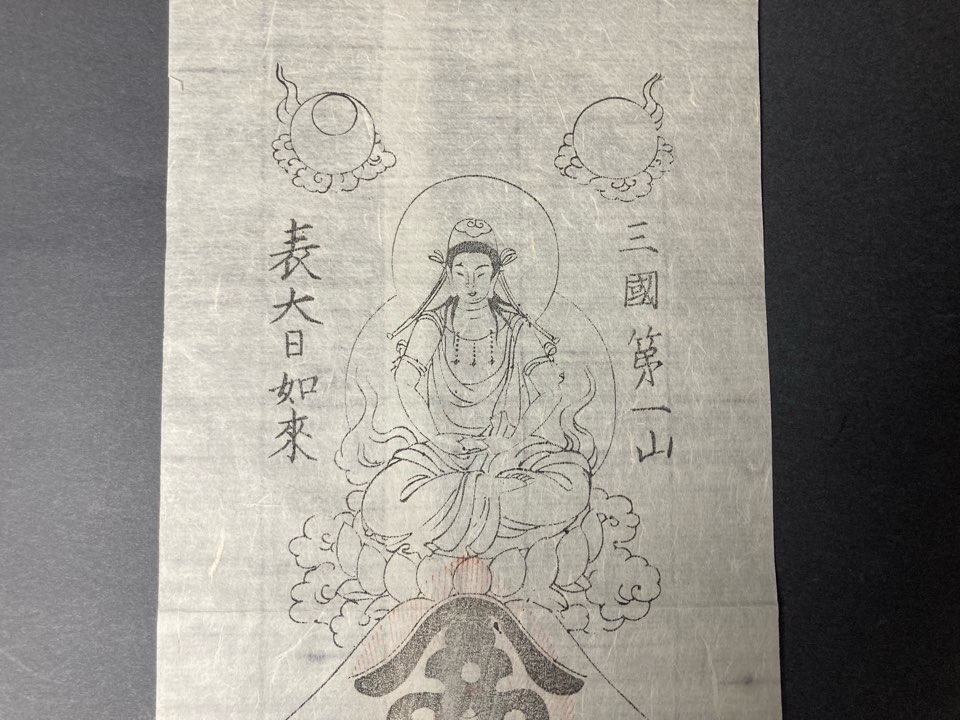 三國第一山
表大日如來